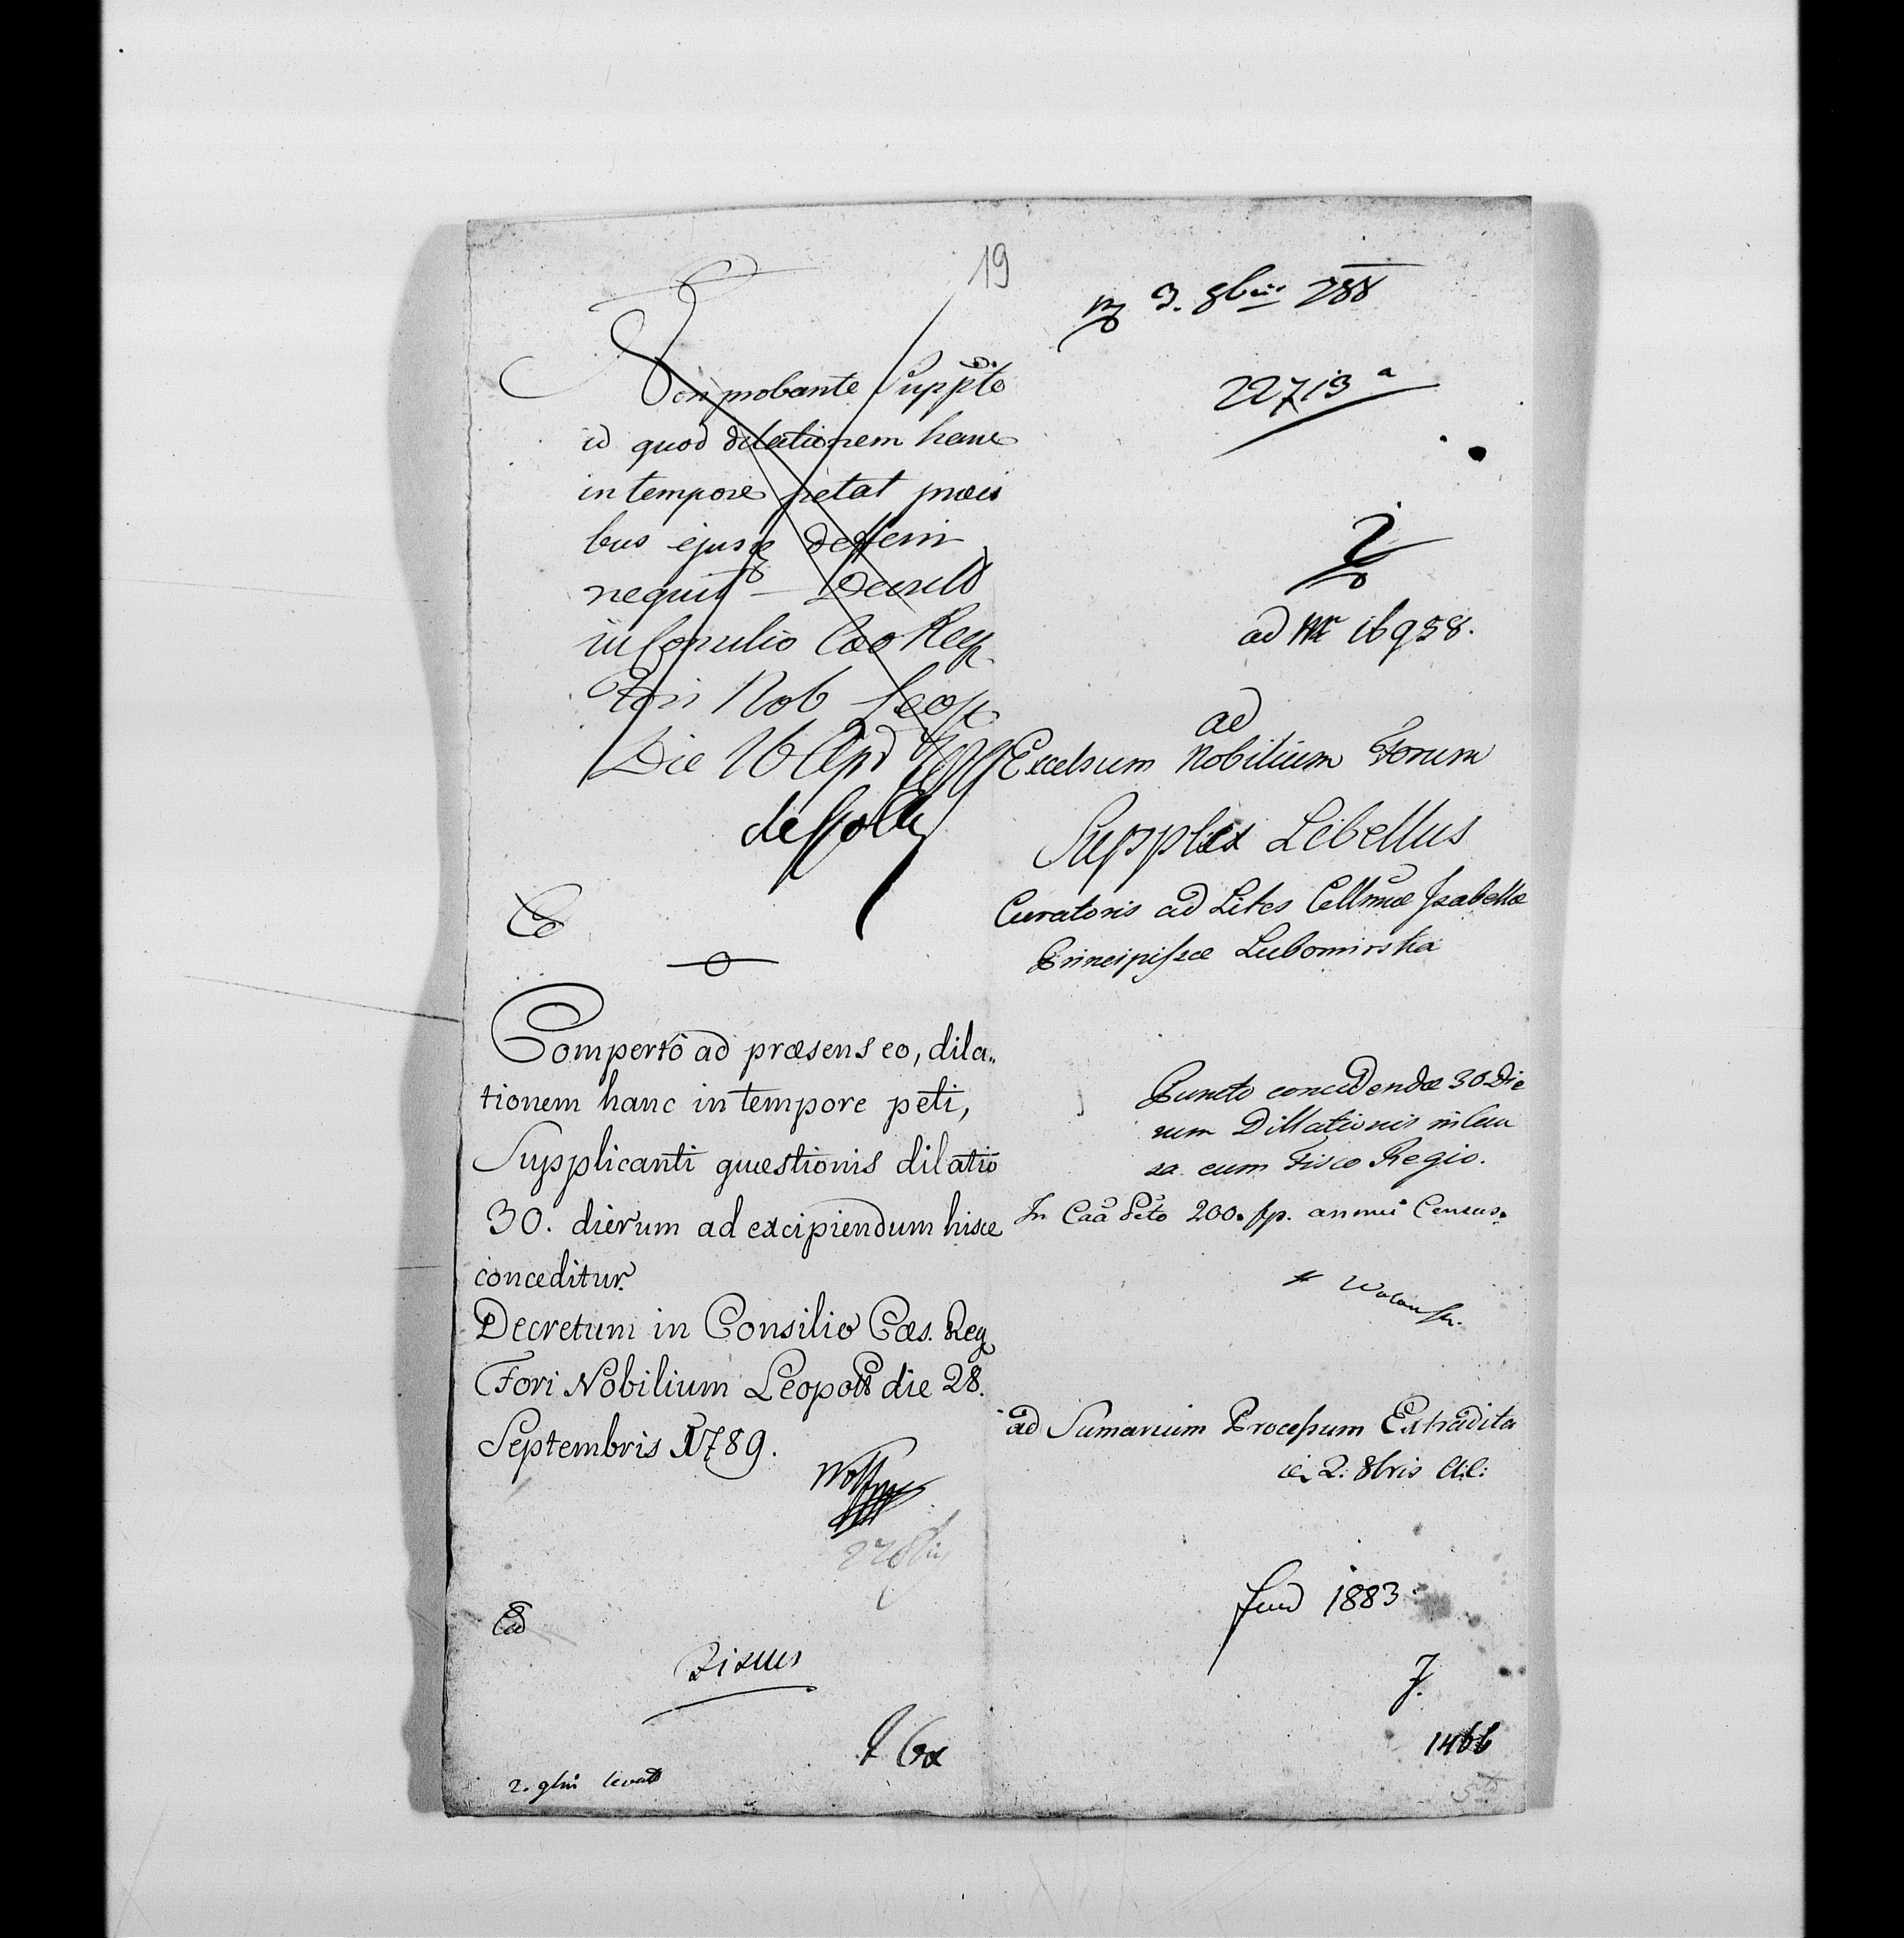 19
Non probante Suppĺte
id quod dilationem hanc
in tempore petat preci
bus ejusq defferri
nequit – Decret
in Consilio Cao Reg
Fori Nob Leop
Die 16 Apr
Co
Compertô ad præsens eo, dila„
tionem hanc in tempore peti,
Supplicanti quæstionis dilatio
30. dierum ad excipiendum hisce
conceditur.
Decretum in Consilio Cæs. Reg
Fori Nobilium Leopoli die 28.
Septembris 1789.
Fiscus
2. 9bri levat
3. 8bris 788
22713 a
ad Nr 16958.
ad
Excelsum Nobilium Forum
Supplex Libellus
Curatoris ad Lites Cellmæ Isabellæ
Principissæ Lubomirska
Puncto concedendæ 30 Die
rum Dillationis in Cau
sa cum Fisco Regio.
In Caã Pcto 200. fp. annui Census.
ad Sumarium Processum Extradita
2. 8bris
fund 1883
7.
1466